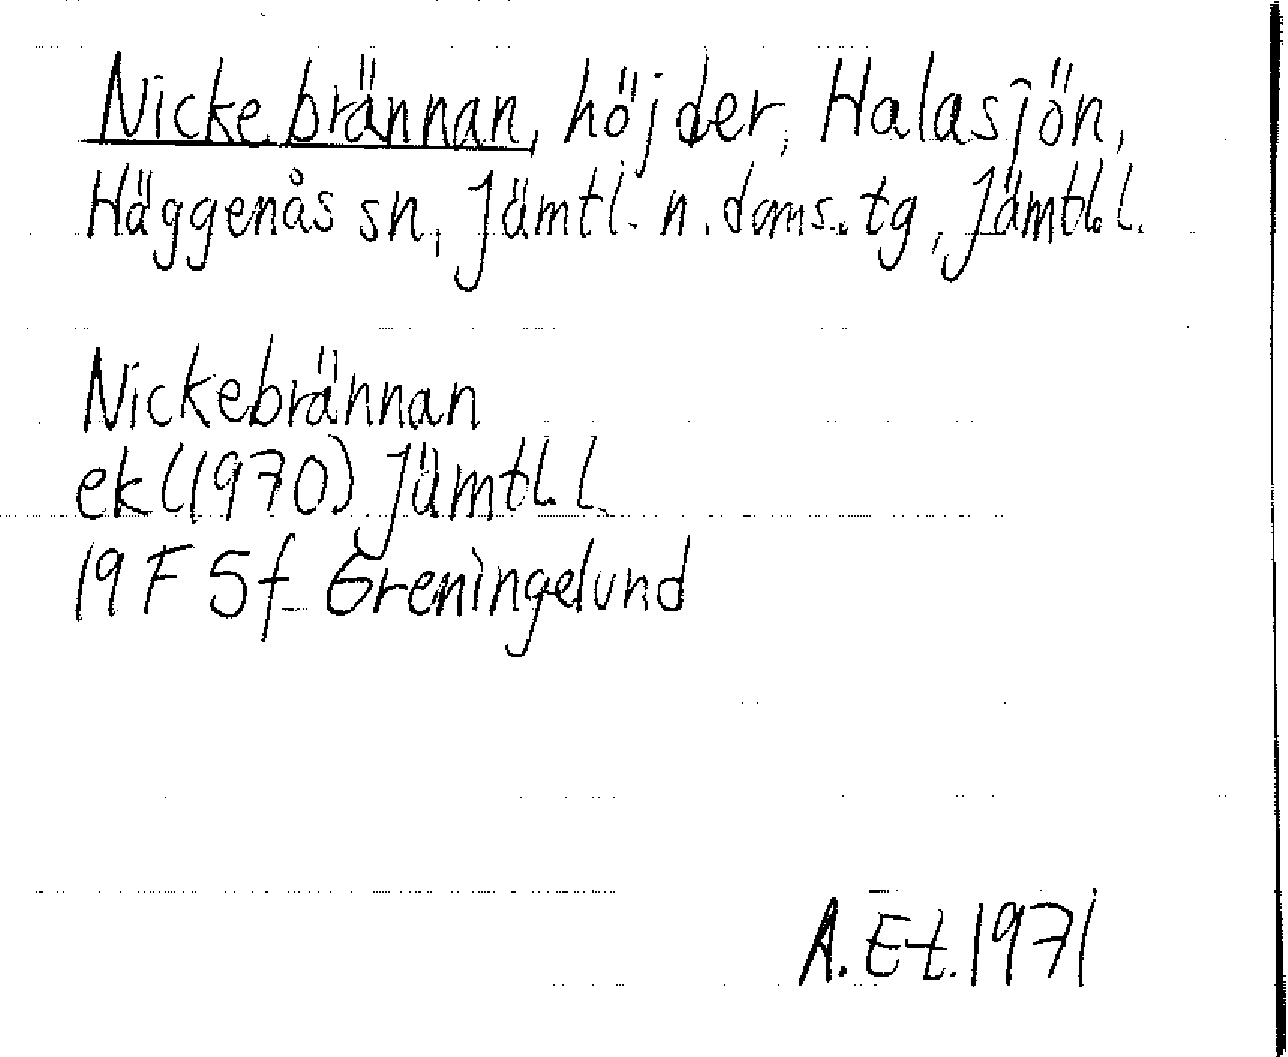 Nickebrännan, höjder, Halasjön,
Häggenås sn, Jämtl. n. doms. tg, Jämtl. l.
Nickebrännan
ek (1970) Jämtl. l.
19 F 5f Greningelund
A. Et. 1971